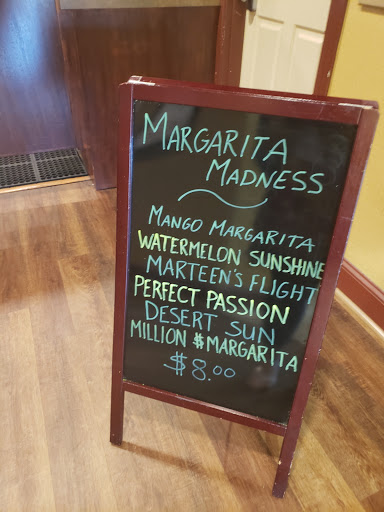 MARGARITA
MADNESS
MANGO MARGARITA
WATERMELON SUNSHINE
MARTEEN'S FLIGHT
PERFECT PASSION
DESERT SUN
MILLION $MARGARITA
$8.00